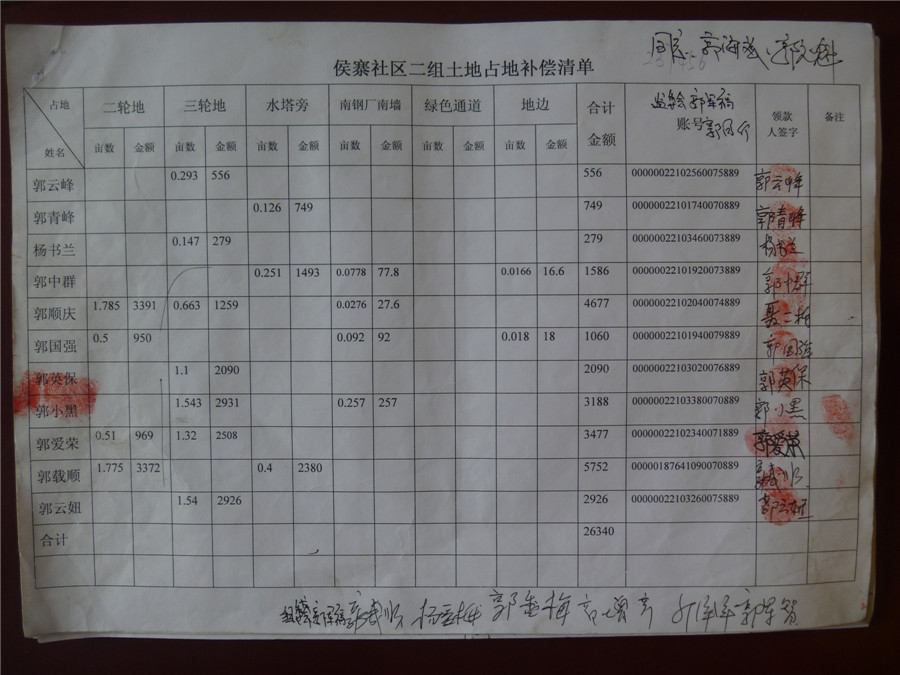 郭海
侯寨社区二组土地占地补偿清单
占地 姓名 二轮地 三轮地 水塔旁 南钢厂南墙 绿色通道 地边 合计金额 账号 领款人签字 备注
亩数 金额 亩数 金额 亩数 金额 亩数 金额 亩数 金额 亩数 金额
郭云峰 0.293 556 556 00000022102560075889 郭云峰
郭青峰 0.126 749 749 00000022101740070889 郭青峰
杨书兰 0.147 279 279 00000022103460073889 杨书兰
郭中群 0.251 1493 0.0778 77.8 0.0166 16.6 1586 00000022101920073889 郭中群
郭顺庆 1.785 3391 0.663 1259 0.0276 27.6 4677 00000022102040074889
郭国强 0.5 950 0.092 92 0.018 18 1060 00000022101940079889 郭国强
郭英保 1.1 2090 2090 00000022103020076889 郭英保
郭小黑 1.543 2931 0.257 257 3188 00000022103380070889 郭小黑
郭爱荣 0.51 969 1.32 2508 3477 00000022102340071889 郭爱荣
郭载顺 1.775 3372 0.4 2380 5752 00000187641090070889
郭云妞 1.54 2926 2926 00000022103260075889 郭云妞
合计 26340